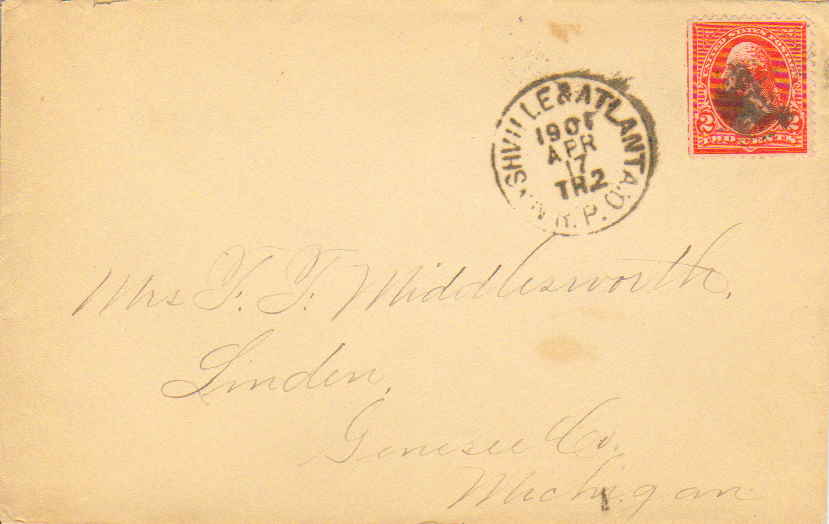 UNITED STATES POSTAGE
2 2
TWO CENTS
SHVILLE & ATLANTA.
1901
APR
17
TR2
R.P.O.
Mrs F. F. Middlesworth,
Linden,
Genesee Co.
Michigan